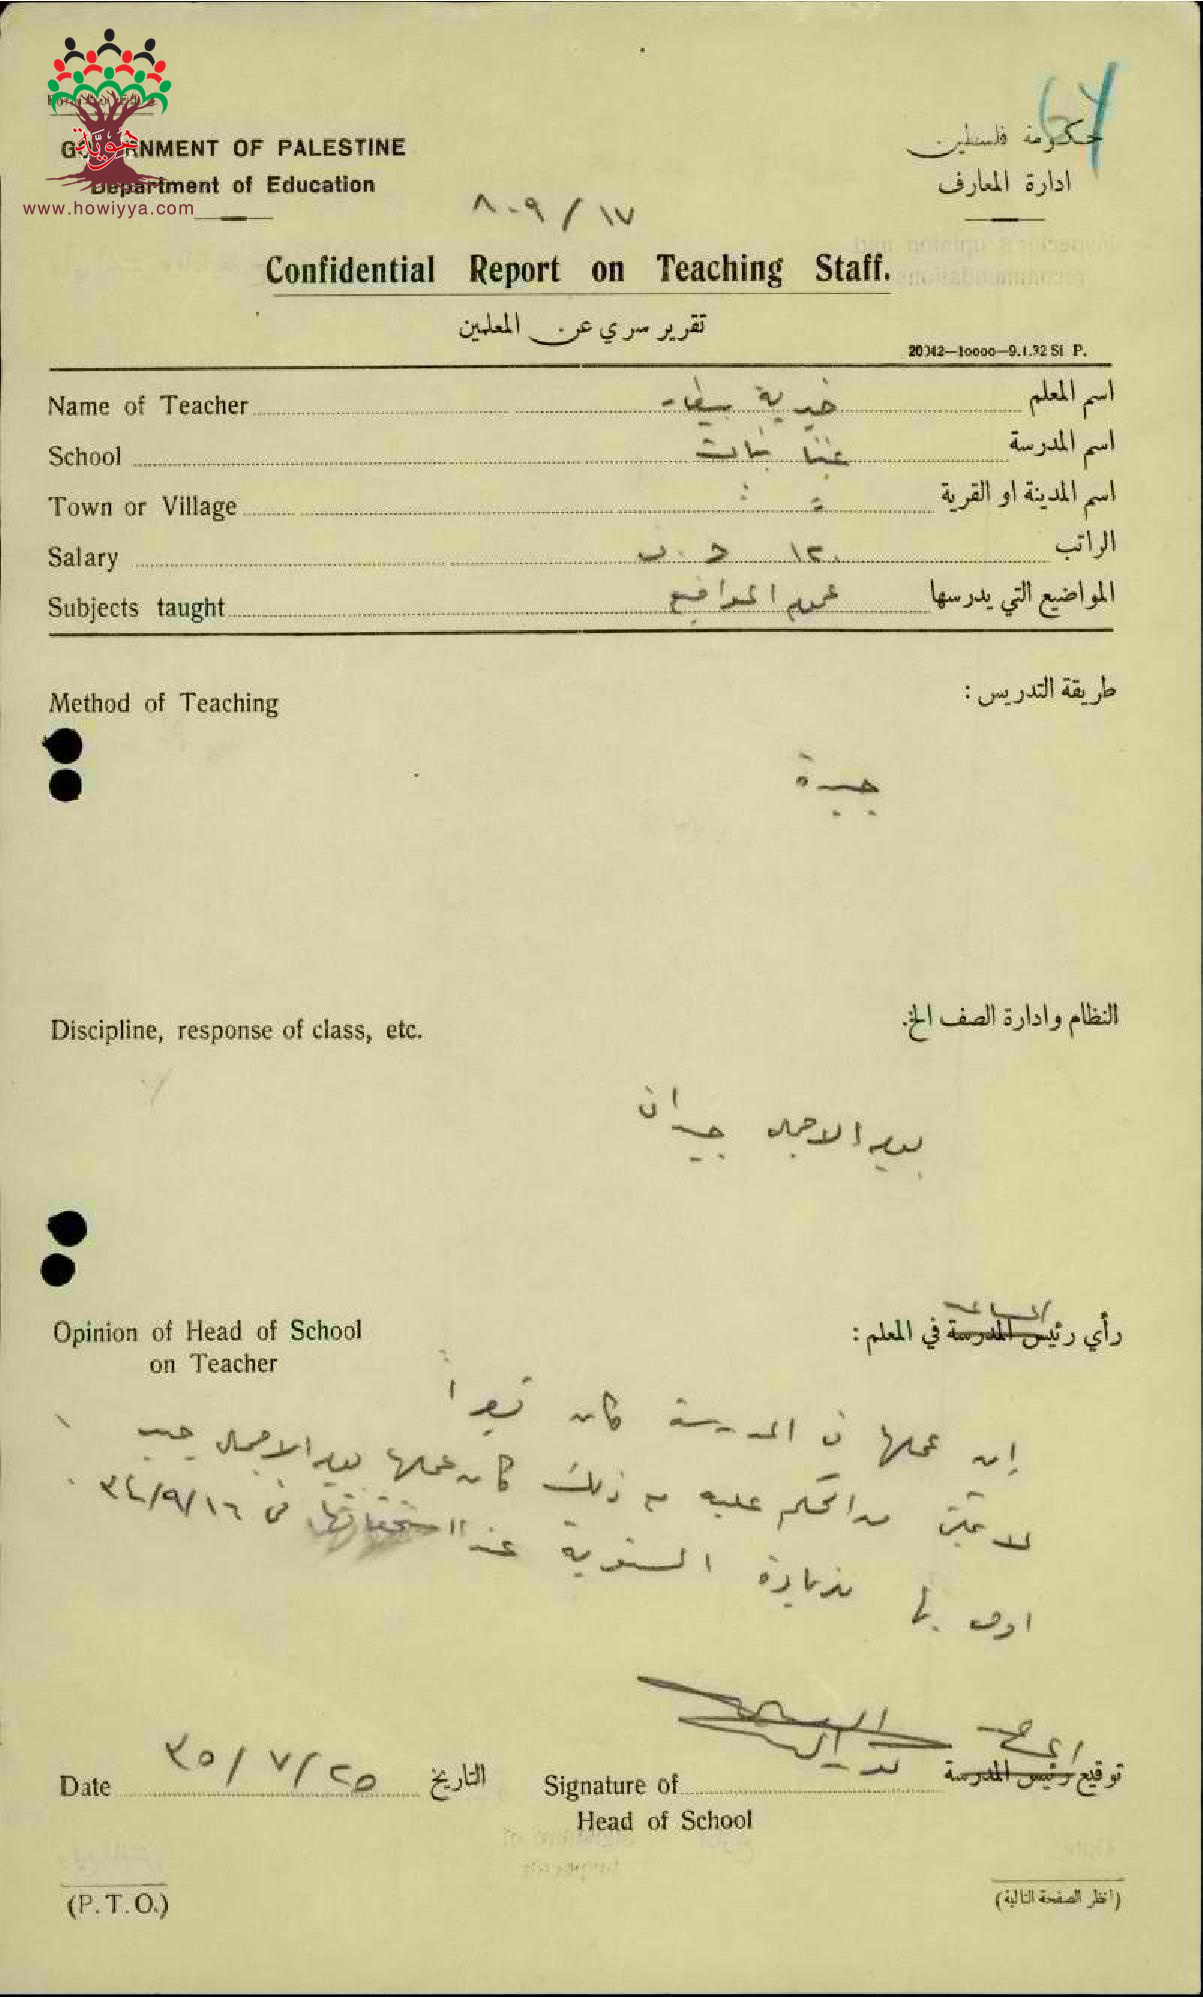 GOVERNMENT OF PALESTINE
Department of Education
هوية
www.howiyya.com
حكومة فلسطين
ادارة المعارف
64
١٧ / ٨٠٩
Confidential Report on Teaching Staff.
تقرير سري عن المعلمين
20042—10000—9.1.32 Si P.
Name of Teacher خيرية بيطار اسم المعلم
School بنات اسم المدرسة
Town or Village اسم المدينة او القرية
Salary ١٢٠ الراتب
Subjects taught عموم المواضيع المواضيع التي يدرسها
Method of Teaching طريقة التدريس :
جيدة
Discipline, response of class, etc. النظام وادارة الصف الخ.
بوجه الاجمال جيدان
Opinion of Head of School رأي رئيس المدرسة في المعلم :
on Teacher
إن عملها في المدرسة كان
لا يمكن من الحكم عليه مع ذلك كان عملها بوجه الاجمال جيد
اوصي لها بزيادة السنوية عند استحقاقها في ٣٤/٩/١٦
توقيع رئيس المدرسة
Date ٣٥/٧/٢٥ التاريخ Signature of
Head of School
(P.T.O.) (انظر الصفحة التالية)